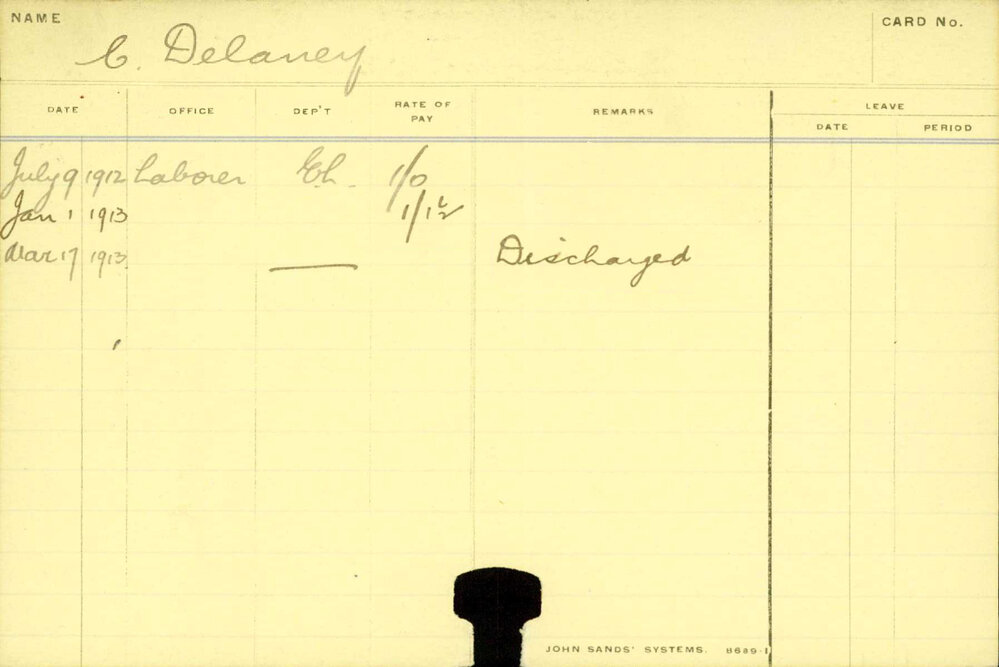 NAME
C. Delaney
CARD No.
DATE OFFICE DEP'T RATE OF PAY REMARKS LEAVE
DATE PERIOD
July 9 1912 Laborer Eh. 1/0
Jan 1 1913 1/1½
Mar 17 1913 — Discharged
JOHN SANDS' SYSTEMS. 8689·1